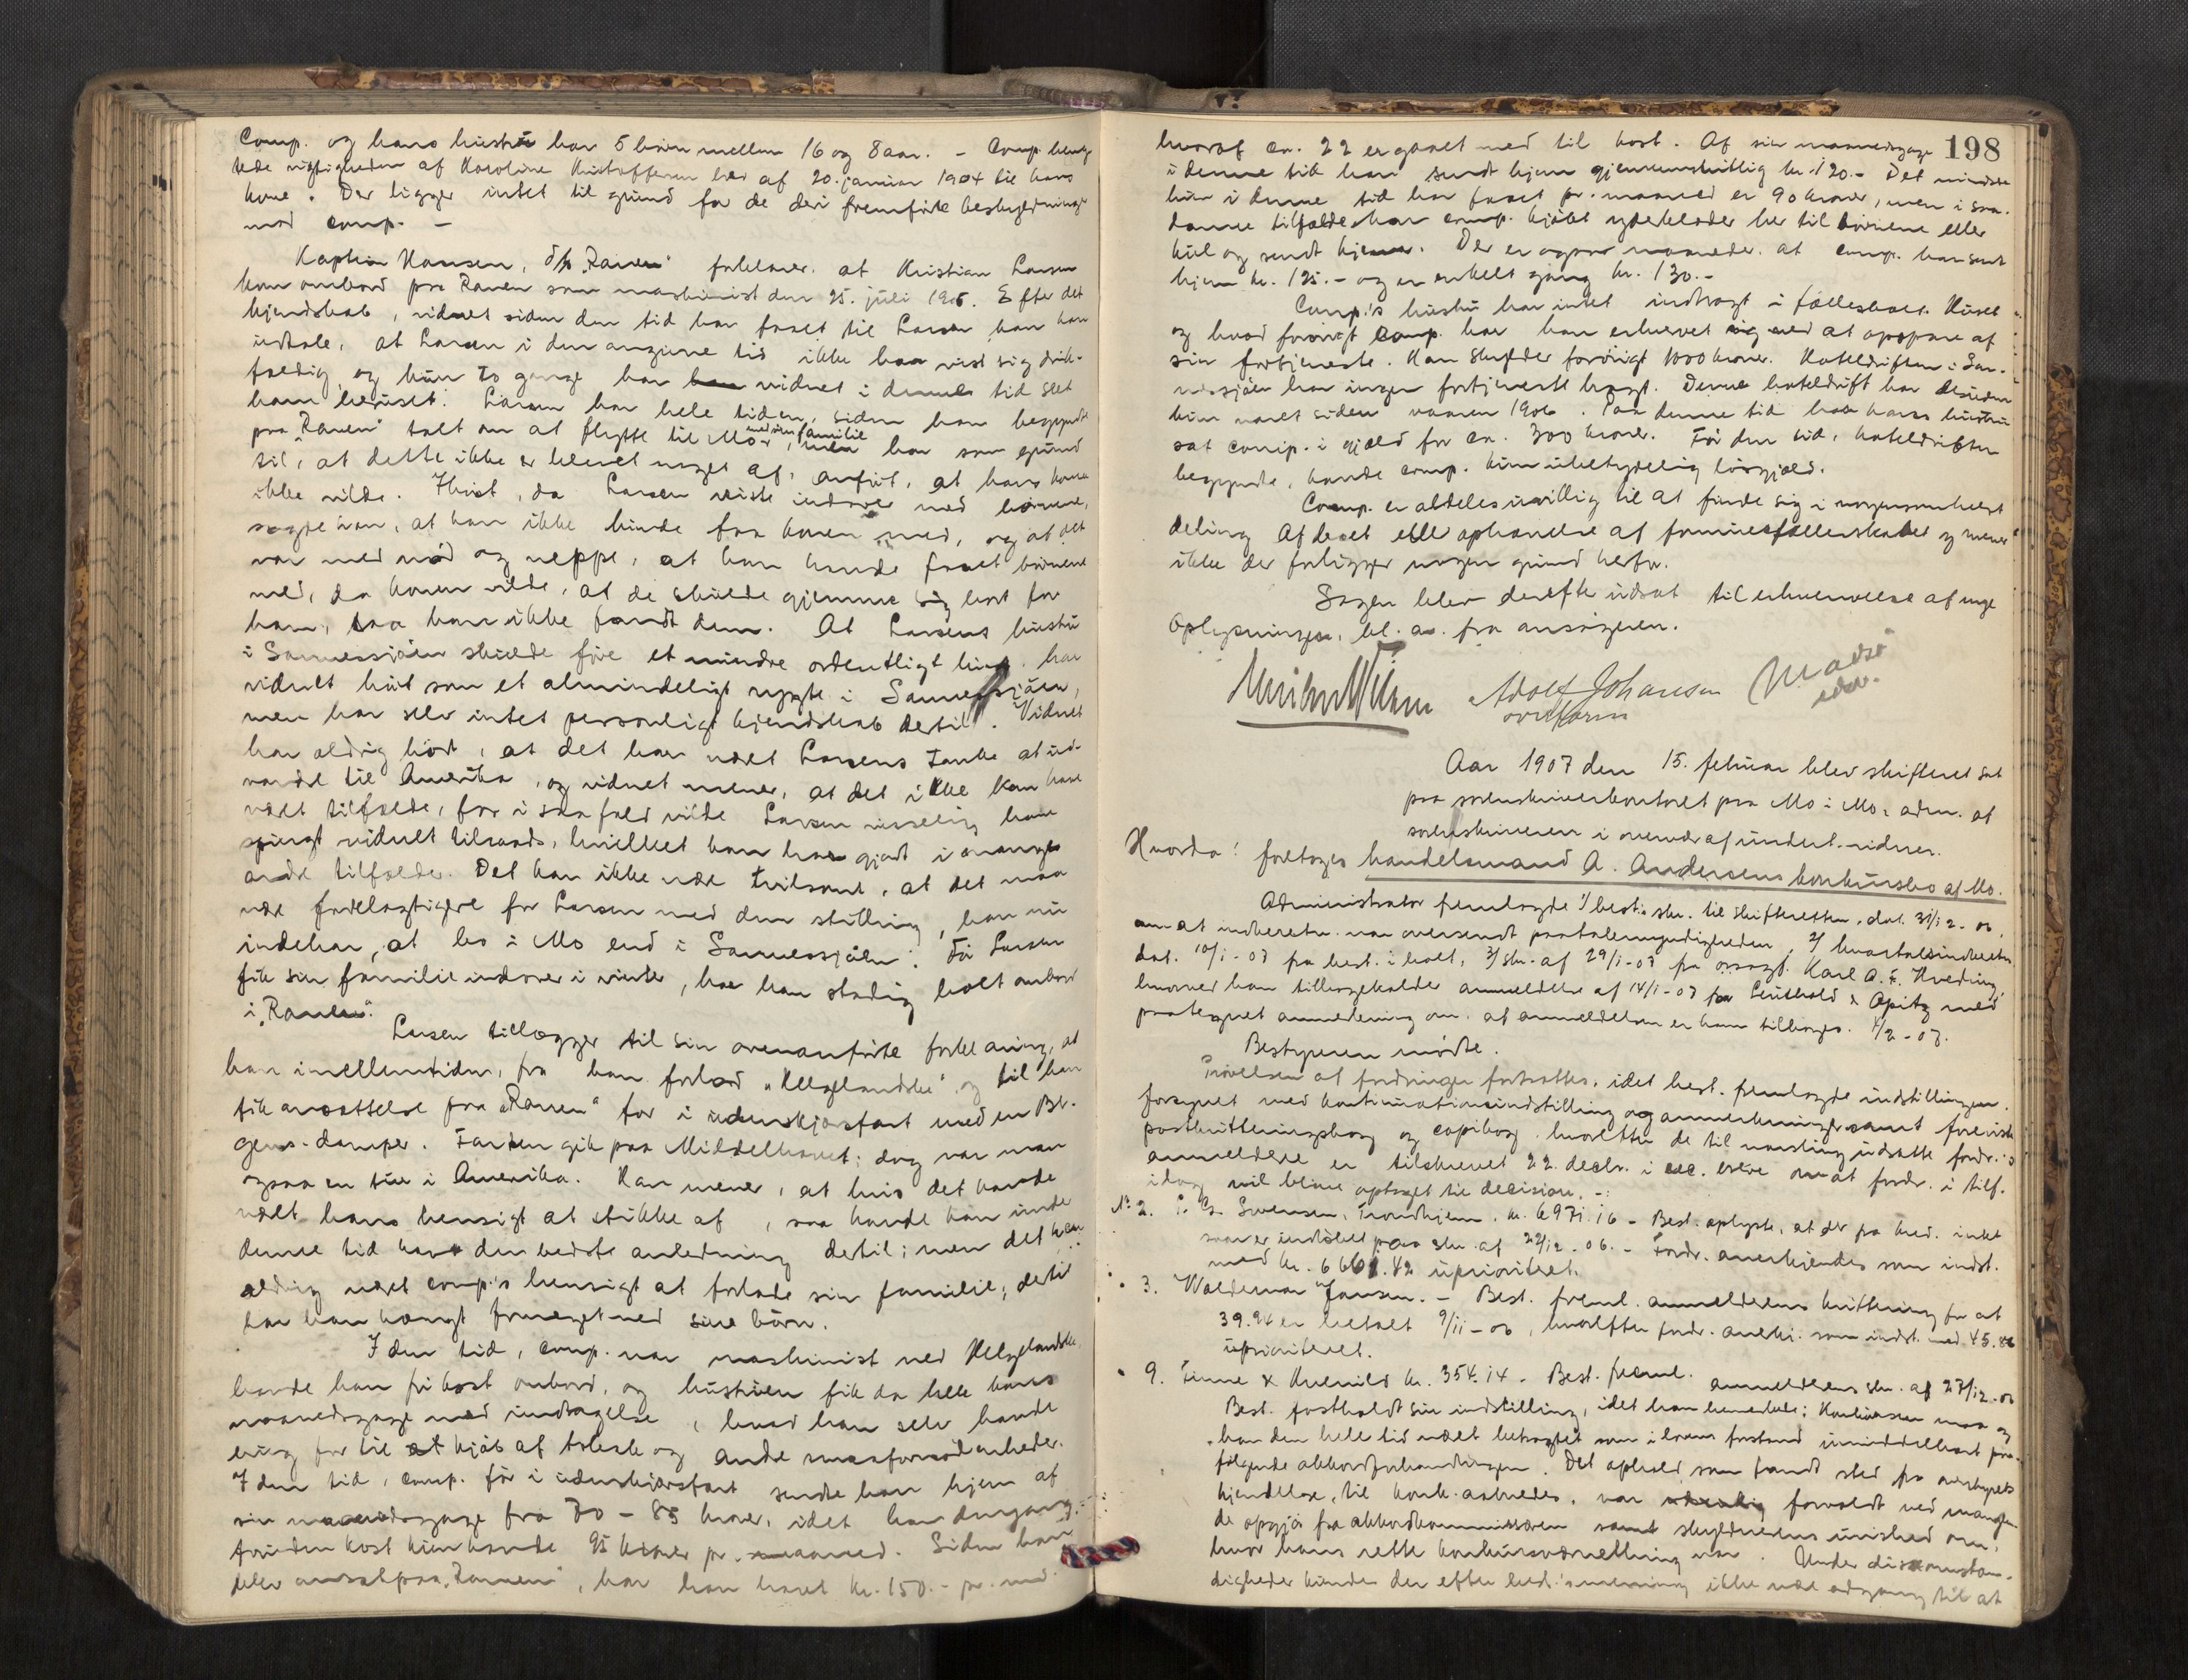 Comp. og hans hustru har 5 börn mellem 16 og 8 aar. – Comp. beneg-
tede rigtigheden af Karoline Kristoffersen brev af 20. januar 1904 til hans
kone. Der ligger intet til grund for de deri fremförte beskyldninger
mod comp. –
Kaptein Hansen, d/s „Ranen" forklarer, at Kristian Larsen
kom ombord paa Ranen som maskinist den 25. juli 1905. Efter det
kjendskab, vidnet siden den tid har faaet til Larsen kan han
udtale, at Larsen i den angivne tid ikke har vist sig drik-
fældig, og kun to gange har vidnet i denne tid seet
ham beruset. Larsen har hele tiden, siden han begyndte
paa „Ranen" talt om at flytte til Mo med sin familie, men har som grund
til, at dette ikke er blevet noget af, anfört, at hans kone
ikke vilde. Ihöst, da Larsen reiste indover med börnene,
sagde han, at han ikke kunde faa konen med, og at det
var med nöd og neppe, at han havde faaet börnene
med, da konen vilde, at de skulde gjemme sig bort for
ham, saa han ikke fandt dem. At Larsens hustru
i Sannessjöen skulde före et mindre ordentligt liv, har
vidnet hört som et almindeligt rygte i Sannessjöen,
men har selv intet personligt kjendskab dertil. Vidnet
har aldrig hört, at det har været Larsens tanke at ud-
vandre til Amerika, og vidnet mener, at det ikke kan have
været tilfælde, for i saa fald vilde Larsen visselig have
spurgt vidnet tilraads, hvilket han har gjort i mange
andre tilfælder. Det kan ikke være tvilsomt, at det maa
være fordelagtigere for Larsen med den stilling, han nu
indehar, at bo i Mo end i Sannessjöen. För Larsen
fik sin familie indover i vinter, har han stadig holt ombord
i „Ranen".
Larsen tillægger til sin ovenanförte forklaring, at
han imellemtiden, fra han forlod „Helgelandske" og til han
fik ansættelse paa „Ranen" for i udenskjærsfart med en Ber-
gens-damper. Farten gik paa Middelhavet; dog var man
ogsaa en tur i Amerika. Han mener, at hvis det havde
været hans hensigt at stikke af, saa havde han under
denne tid havt den bedste anledning dertil; men det har
aldrig været comp's hensigt at forlade sin familie; dertil
har han hængt formeget ved sine börn.
I den tid, comp. var maskinist ved Helgelandske
havde han fri kost ombord, og hustruen fik da hele hans
maanedsgage med undtagelse, hvad han selv havde
brug for til kjöb af tobak og andre smaafornödenheder.
I den tid, comp. för i udenskjærsfart sendte han hjem af
sin maanedsgage fra 70 – 85 kroner, idet han dengang
foruden kost kun havde 95 kroner pr. maaned. Siden han
blev ansat paa „Ranen", har han havt kr. 150.- pr. md.
198
hvoraf ca. 22 er gaaet med til kost. Af sin maanedsgage
i denne tid har sendt hjem gjennemsnitlig kr. 120.- Det mindste
hun i denne tid har faaet pr. maaned er 90 kroner, men i saa-
danne tilfælde har comp. kjöbt yderklæder her til börnene eller
kul og sendt hjem. Der er ogsaa maaneder at comp. har sent
hjem kr. 125.- og en enkelt gang kr. 130.-
Comp.'s hustru har intet indbragt i fællesboet. Huset
og hvad forövrigt comp. har har han erhvervet sig ved at opspare af
sin fortjeneste. Han skylder forövrigt 1000 kroner. Hoteldriften i San-
nessjöen har ingen fortjeneste bragt. Denne hoteldrift har desuden
kun varet siden vaaren 1906. Paa denne tid har hans hustru
sat comp. i gjæld for ca. 300 kroner. För den tid, hoteldriften
begyndte, havde comp. kun ubetydelig lösgjæld.
Comp. er aldeles uvillig til at finde sig i nogensomhelst
deling af boet eller ophævelse af formuesfællesskabet og mener
ikke der foreligger nogen grund herfor.
Sagen blev derefter udsat til erhvervelse af nye
oplysninger, bl. a. fra ansögeren.
Adolf Johansen
Aar 1907 den 15. februar blev skifteret sat
paa sorenskriverkontoret paa Mo i Mo, adm. af
sorenskriveren i overvær af undert. vidner.
Hvorda: foretoges handelsmand A. Andersens konkursbo af Mo.
Administrator fremlagde 1/ best. skr. til skifteretten, dat. 31/12-06,
om at indberetn. var oversendt paatalemyndigheden, 2/ kvartalsindberetn.
dat. 10/1-07 fra best. i boet, 3/ skr. af 29/1-07 fra orsagf. Karl A. F. Hveding,
hvorved han tilbagekalder anmeldelse af 14/1-07 fra Leuthold & Apitz med
paategnet anmerkning om, at anmeldelsen er ham tilbages. 1/2-07.
Bestyreren mödte.
Prövelsen af fordringer fortsattes, idet best. fremlagde indstillingen
forsynet med kontinuationsindstilling og anmerkninger samt foreviste
postkvitteringsbog og copibog, hvorefter de til varsling udsatte fordr.'s
anmeldere er tilskrevet 22. decbr. i rec. breve om at fordr. i tilf.
idag vil blive optaget til decision. –
No 2. Svensen, Trondhjem. kr. 6971.16 – Best. oplyste, at der fra kred. intet
svar er indlöbet paa skr. af 22/12-06. – Fordr. anerkjendes som indst.
med kr. 6661.42 uprioriteret.
" 3. Waldemar Jansen. – Best. freml. anmelderens kvittering for at
39.94 er betalt 9/11-06, hvorefter fordr. anerkj. som indst. med 45.86
uprioriteret.
" 9. Finne & Kvenild kr. 354.14. Best. freml. anmelderens skr. af 27/12-06
Best. fastholdt sin indstilling, idet han bemerkede: Konkursen maa og
har den hele tid været betragtet som i lovens forstand umiddelbart paa-
fölgende akkordforhandlingen. Det ophold, som fandt sted fra
kjendelse, til konk. aabnedes, var forvoldt ved manglen-
de opgjör fra akkordkommissæren samt skyldnerens uvished om,
hvor hans rette konkursværnething var. Under disse omstæn-
digheder kunde der efter best.'s mening ikke være adgang til at